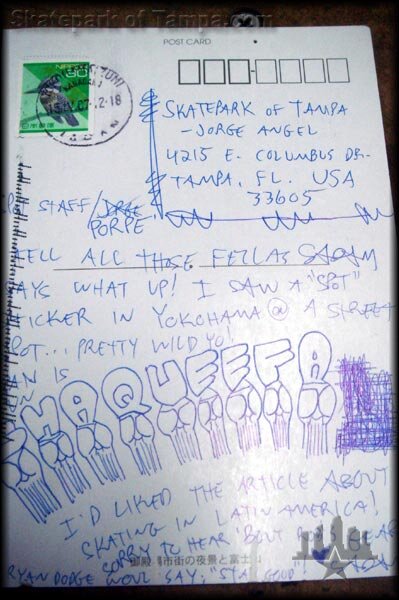 Skatepark of Tampa.com
POST CARD
NIPPON
80
SKATEPARK OF TAMPA
-JORGE ANGEL
4215 E. COLUMBUS DR.
TAMPA, FL. USA
33605
STAFF/
PORPE
TELL ALL THOSE FELLAS
SAYS WHAT UP! I SAW A "SPOT"
STICKER IN YOKOHAMA @ A STREET
SPOT... PRETTY WILD YO!
IS
SHAQUEEFA
I'D LIKED THE ARTICLE ABOUT
SKATING IN LATIN AMERICA!
SORRY TO HEAR 'BOUT
RYAN DODGE WOUL' SAY: "STAY GOOD"
市街の夜景と富士山